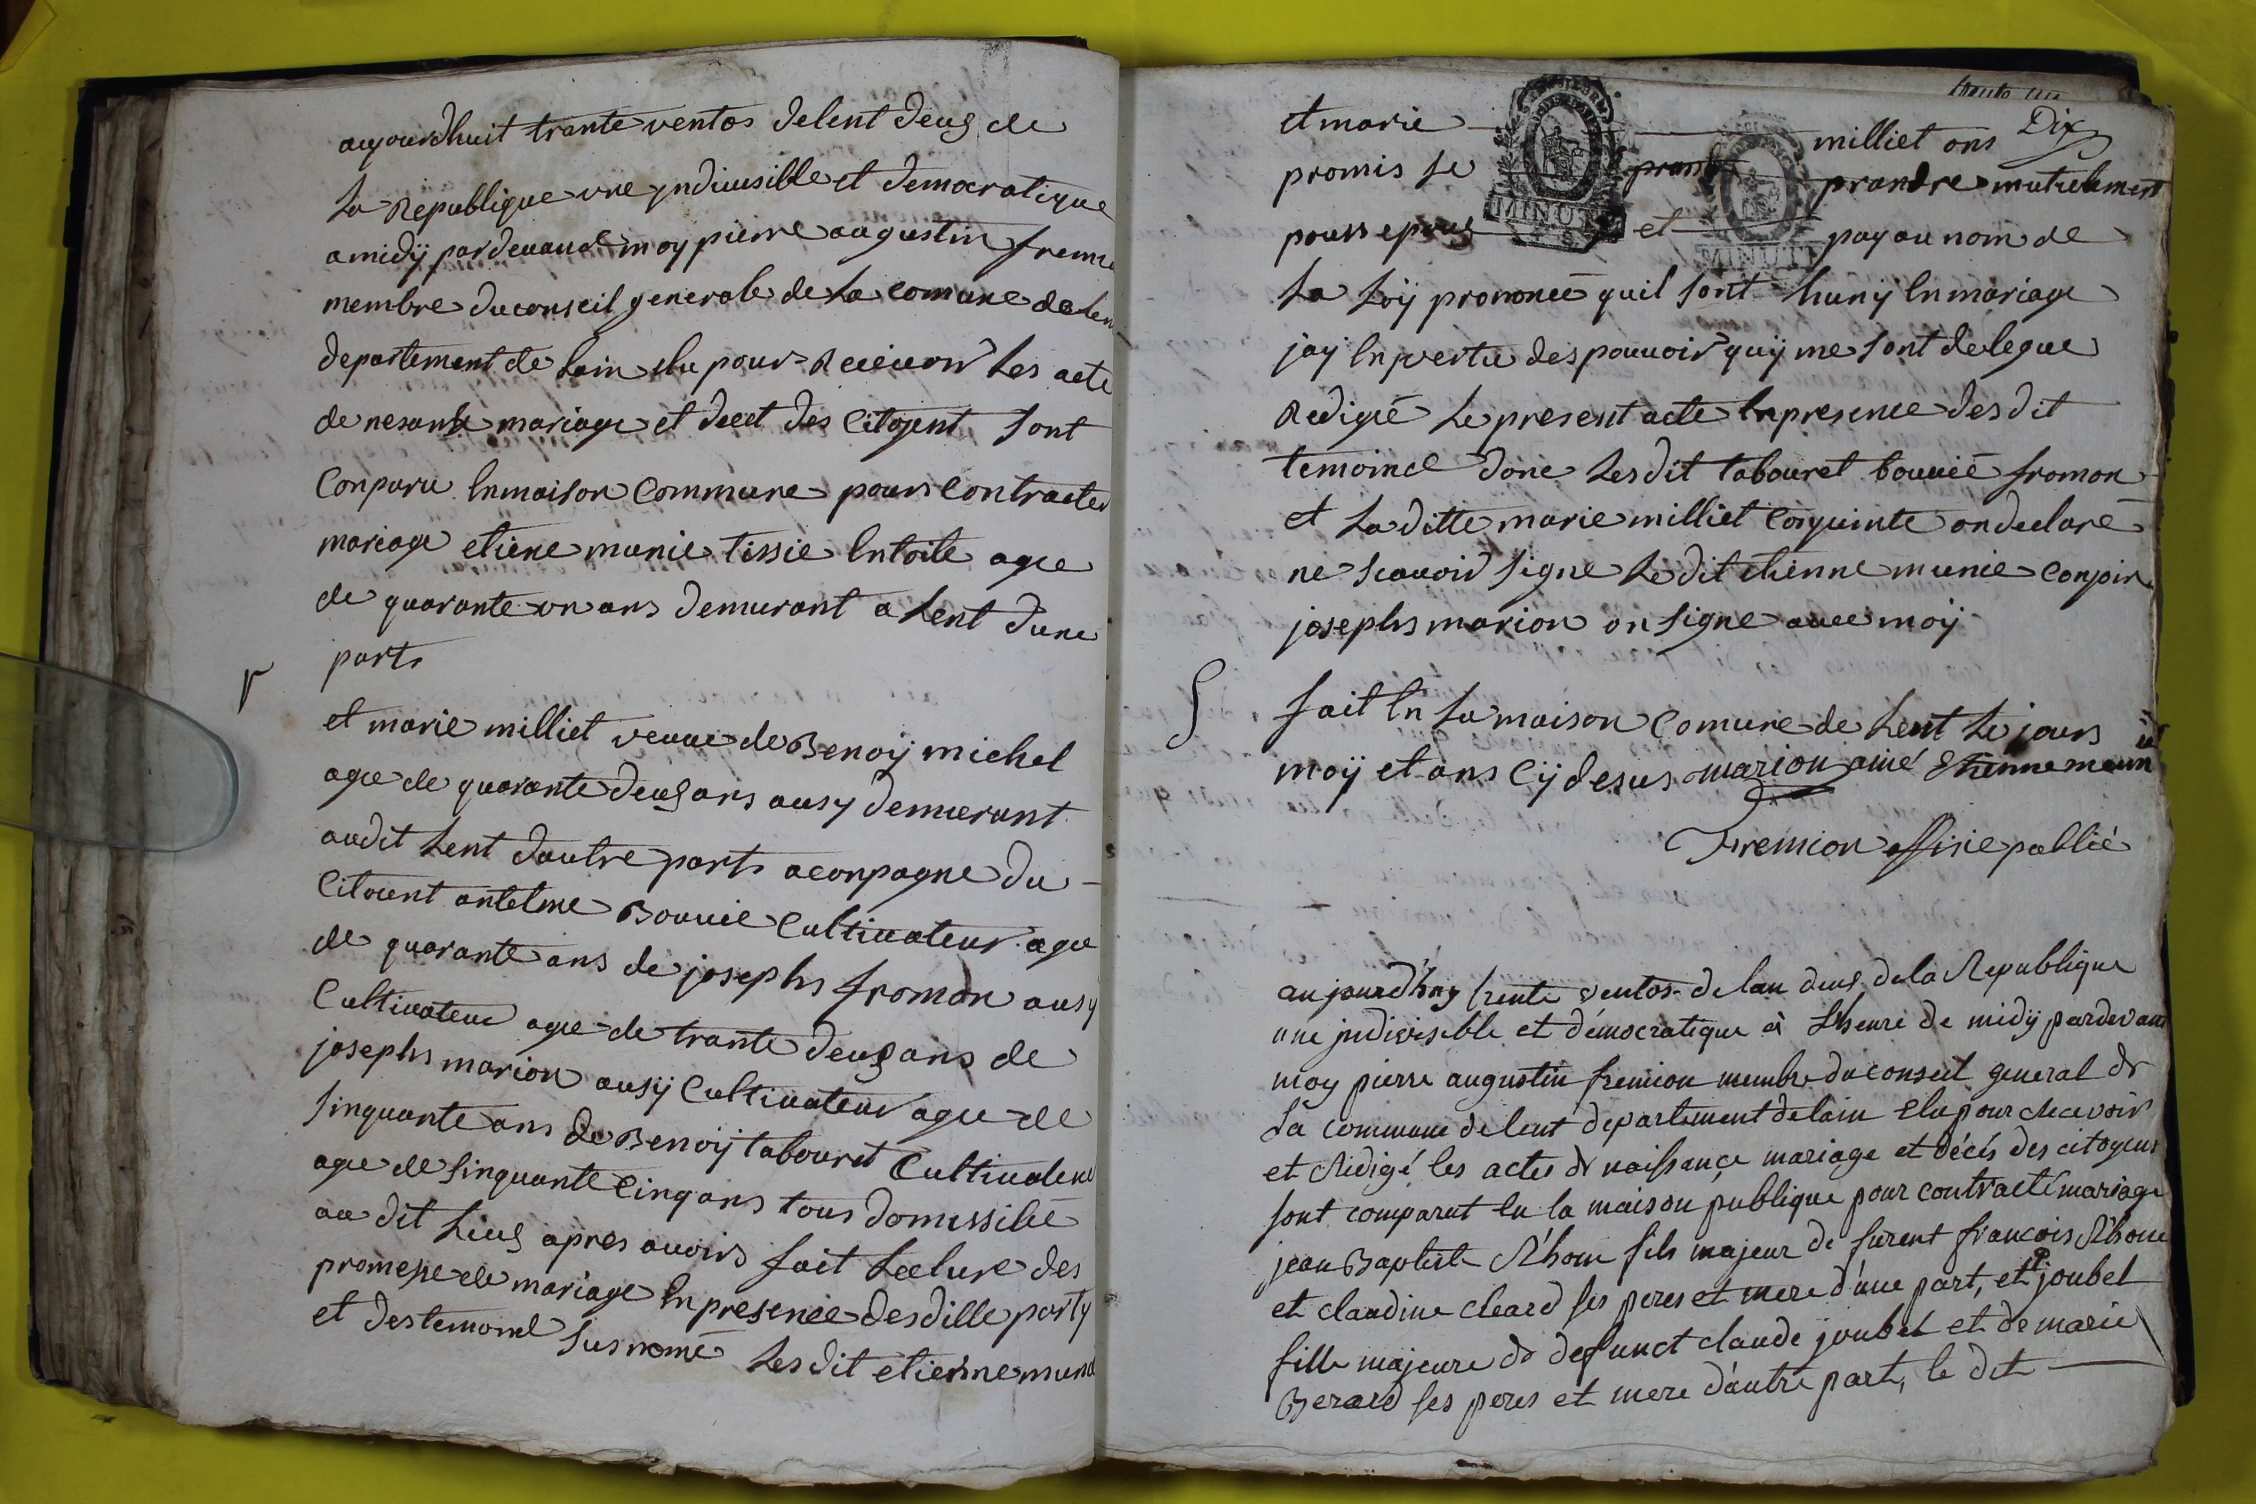 aujourdhuit trante ventos delent deux de
La Republique une yndiuisible et democratique
a midÿ pardeuand moy pierre augustin fremi
membre du conseil generale de La comune de Len
departement de Lain elu pour Reseuoir Les acte
de nesanse mariage et decet des Citoyent sont
Conparu En maison Commune pour Contracter
mariage etiene munie tissie En toile agee
de quarante un ans demurant a Lent dune
parts
et marie milliet veuue de Benoÿ michel
agee de quarante deux ans ausy demeurant
audit Lent dautre parts aconpagne du
Citoient antelme Bouuié Cultiuateur agee
de quarante ans de josephs fromon ausy
Cultiuateur agee de trante deux ans de
josephs marion ausÿ Cultiuateur agee de
sinquante ans de Benoÿ tabouret Cultiuateur
agee de sinquante Cinq ans tous domissilié
au dit Lieux apres auoirs fait Lecture des
promesse de mariage En presence des ditte party
et des temond susnomé Les dit etienne munié
Dix
et marie milliet ons
promis se prandre prandre mutuelement
pours epous et pay au nom de
La Loÿ prononcé quil sont huny En mariage
jay En vertu des pouuoir quÿ me sont delegue
Redigié Le present acte En presence des dit
temoind donc Les dit tabouret bouuié fromon
et La ditte marie milliet Conjointe on declaré
ne scauoir signe Le dit etienne munie Conjoin
josephs marion on signe auec moÿ
fait En La maison Comune de Lent Le jours
moÿ et ans Cÿ desus marion ainé Etienne meuni
Fremion officie publié
aujourd'huy trente ventos de lan deux de la Republique
une jndivisible et démocratique à L'heure de midÿ pardevant
moy pierre augustin fremion membre du conseil general de
La commune de lent departement de lain Elu pour Recevoir
et Rédigé les actes de naissance mariage et décés des citoyens
sont comparut En la maison publique pour contracté mariage
jean Baptiste Rhone fils majeur de furent francois Rhone
et claudine cleard ses peres et mere d'une part, et joubet
fille majeure de defunct claude joubet et de marie
Berard ses peres et mere d'autre part, le dit